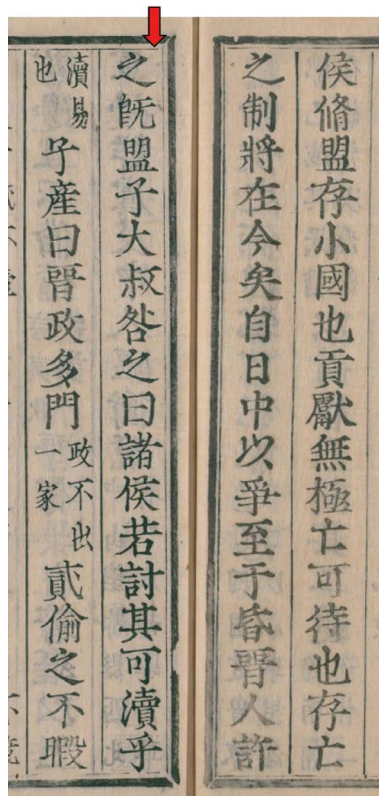 侯脩盟存小國也貢獻無極亡可待也存亡
之制將在今矣自日中以爭至于昏晉人許
之旣盟子大叔咎之曰諸侯若討其可瀆乎
瀆易
也
子産曰晉政多門
政不出
一家
貳偷之不暇